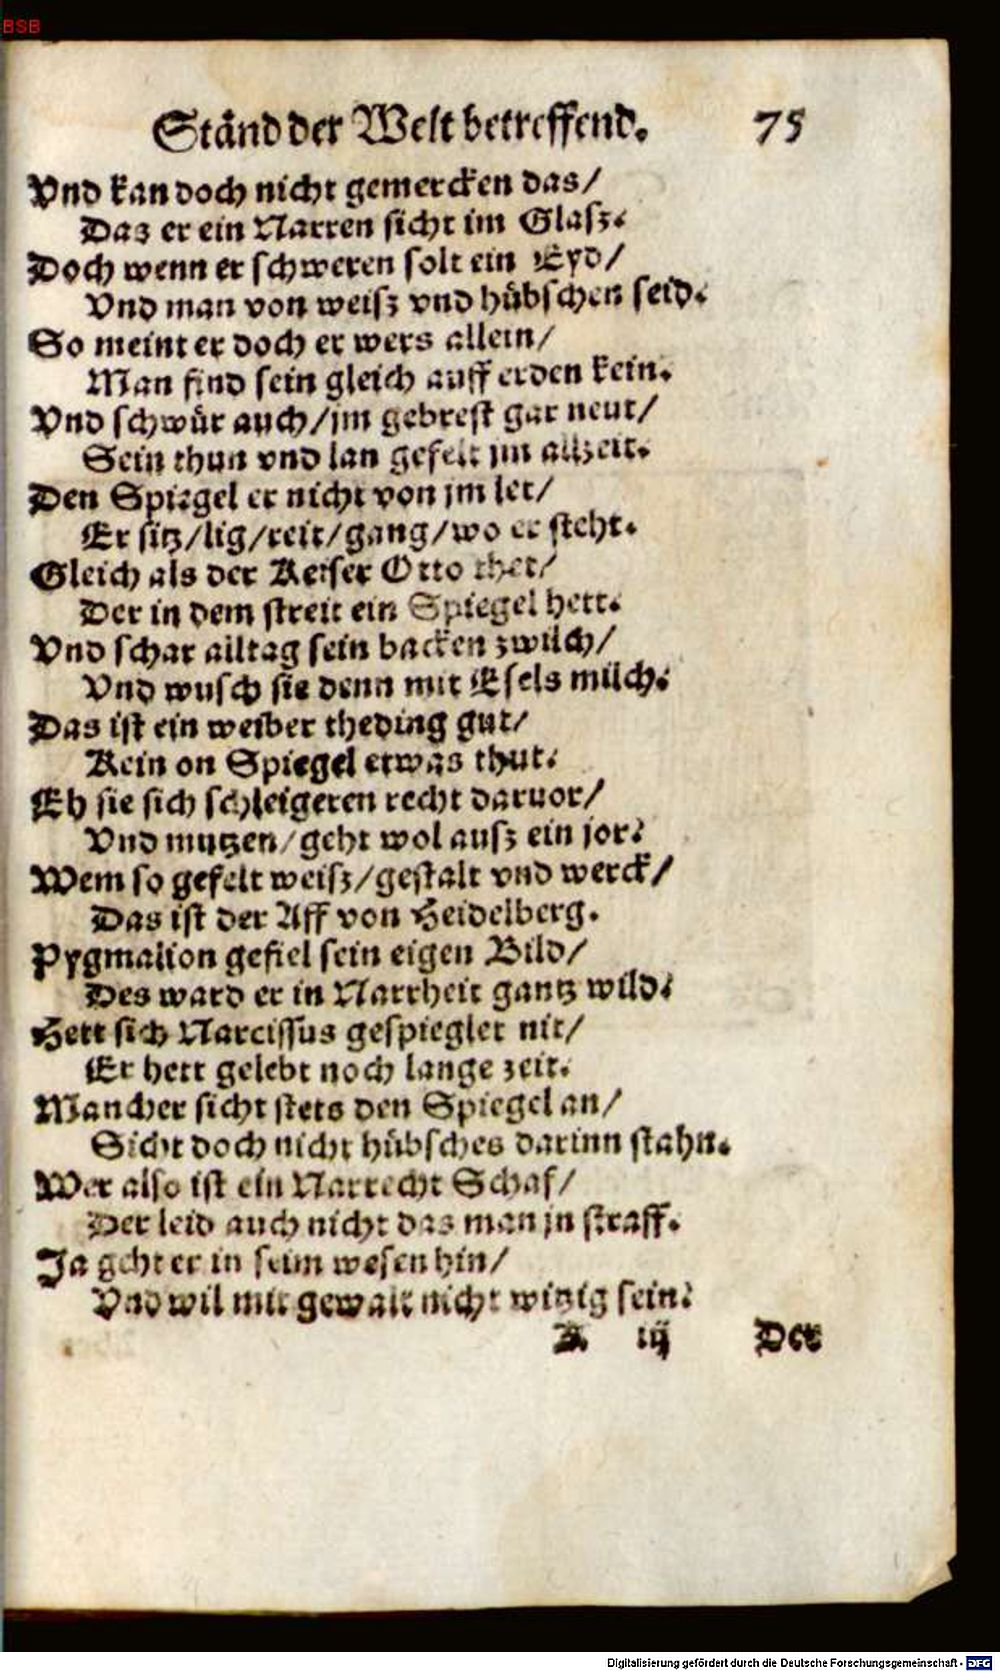 BSB
Ständ der Welt betreffend. 75
Vnd kan doch nicht gemercken das/
Daz er ein Narren sicht im Glasz.
Doch wenn er schweren solt ein Eyd/
Vnd man von weisz vnd hübschen seid.
So meint er doch er wers allein/
Man find sein gleich auff erden kein.
Vnd schwür auch/jm gebrest gar neut/
Sein thun vnd lan gefelt jm allzeit.
Den Spiegel er nicht von jm let/
Er sitz/lig/reit/gang/wo er steht.
Gleich als der Keiser Otto thet/
Der in dem streit ein Spiegel hett.
Vnd schar alltag sein backen zwilch/
Vnd wusch sie denn mit Esels milch.
Das ist ein weiber theding gut/
Kein on Spiegel etwas thut.
Eh sie sich schleigeren recht daruor/
Vnd mutzen/geht wol ausz ein jor.
Wem so gefelt weisz/gestalt vnd werck/
Das ist der Aff von Heidelberg.
Pygmalion gefiel sein eigen Bild/
Des ward er in Narrheit gantz wild.
Hett sich Narcissus gespieglet nit/
Er hett gelebt noch lange zeit.
Mancher sicht stets den Spiegel an/
Sicht doch nicht hübsches darinn stahn.
Wer also ist ein Narrecht Schaf/
Der leid auch nicht das man jn straff.
Ja geht er in seim wesen hin/
Vnd wil mit gewalt nicht witzig sein.
K iij Der
Digitalisierung gefördert durch die Deutsche Forschungsgemeinschaft - DFG